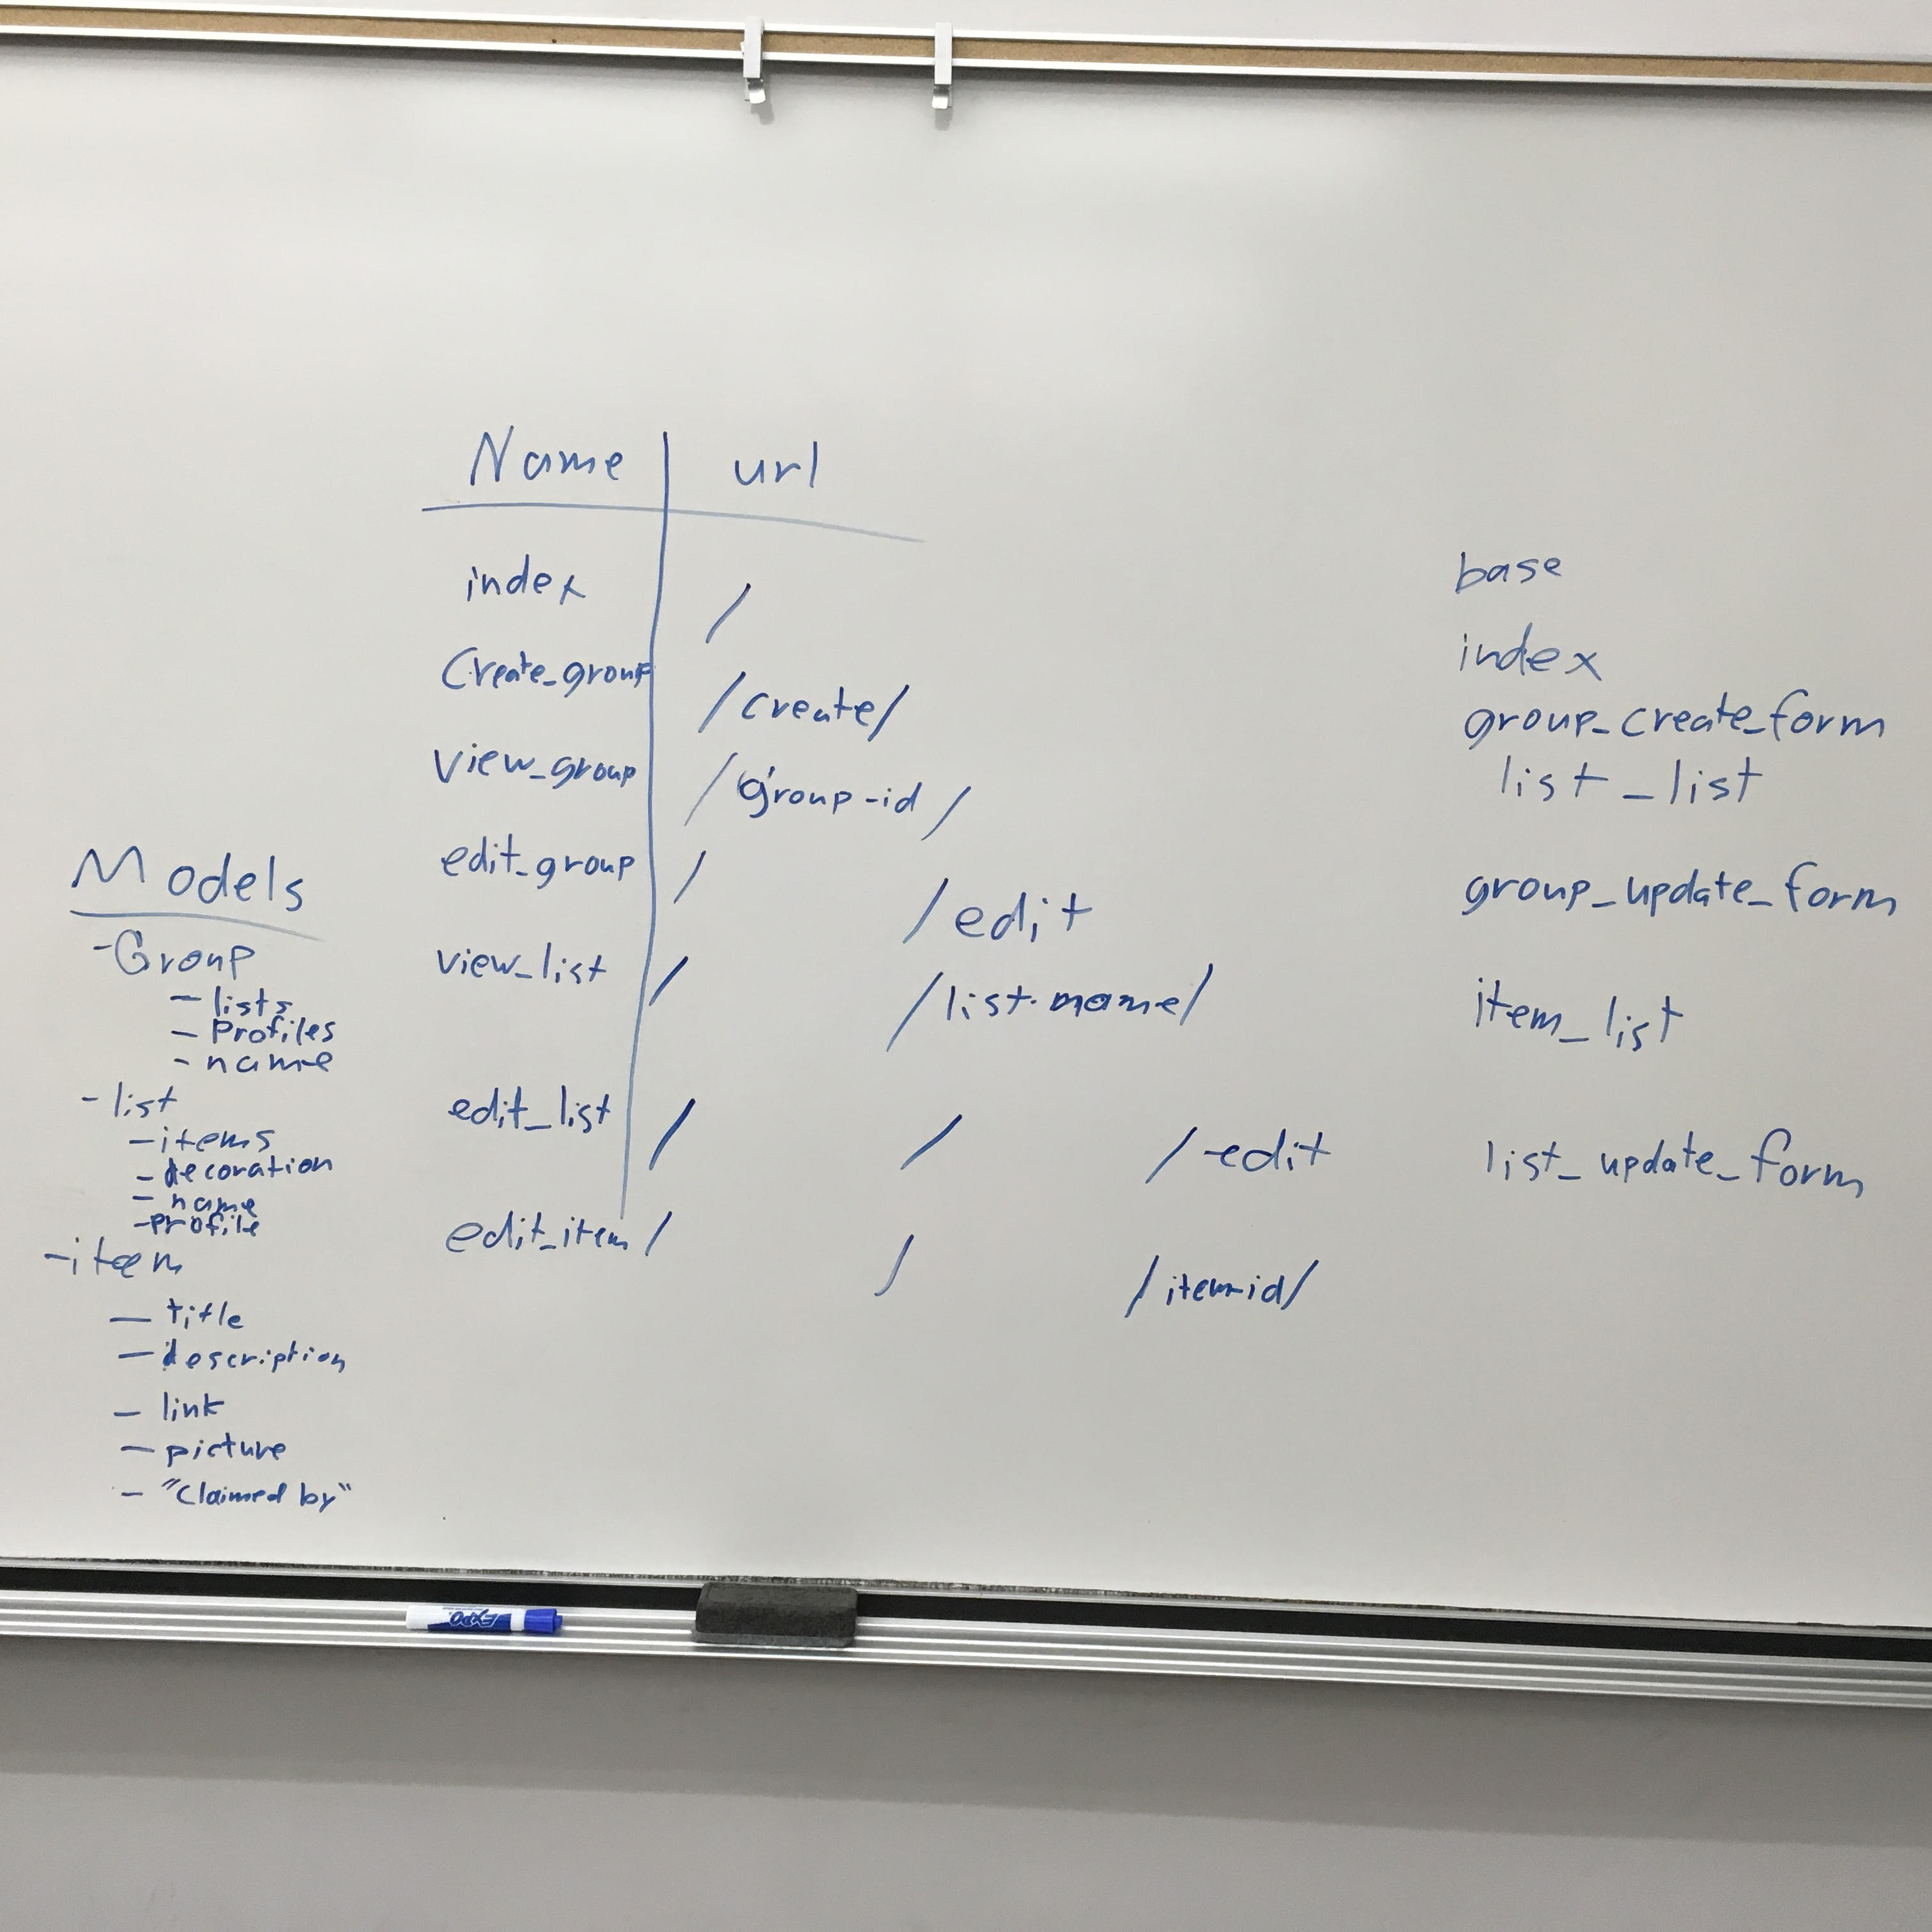 Name | url
index /
Create_group /create/
view_group /group-id/
edit_group / /edit
view_list / /list-name/
edit_list / / /edit
edit_item / / /item-id/
Models
- Group
- lists
- Profiles
- name
- list
- items
- decoration
- name
- profile
- item
- title
- description
- link
- picture
- "Claimed by"
base
index
group_create_form
list_list
group_update_form
item_list
list_update_form
EXPO